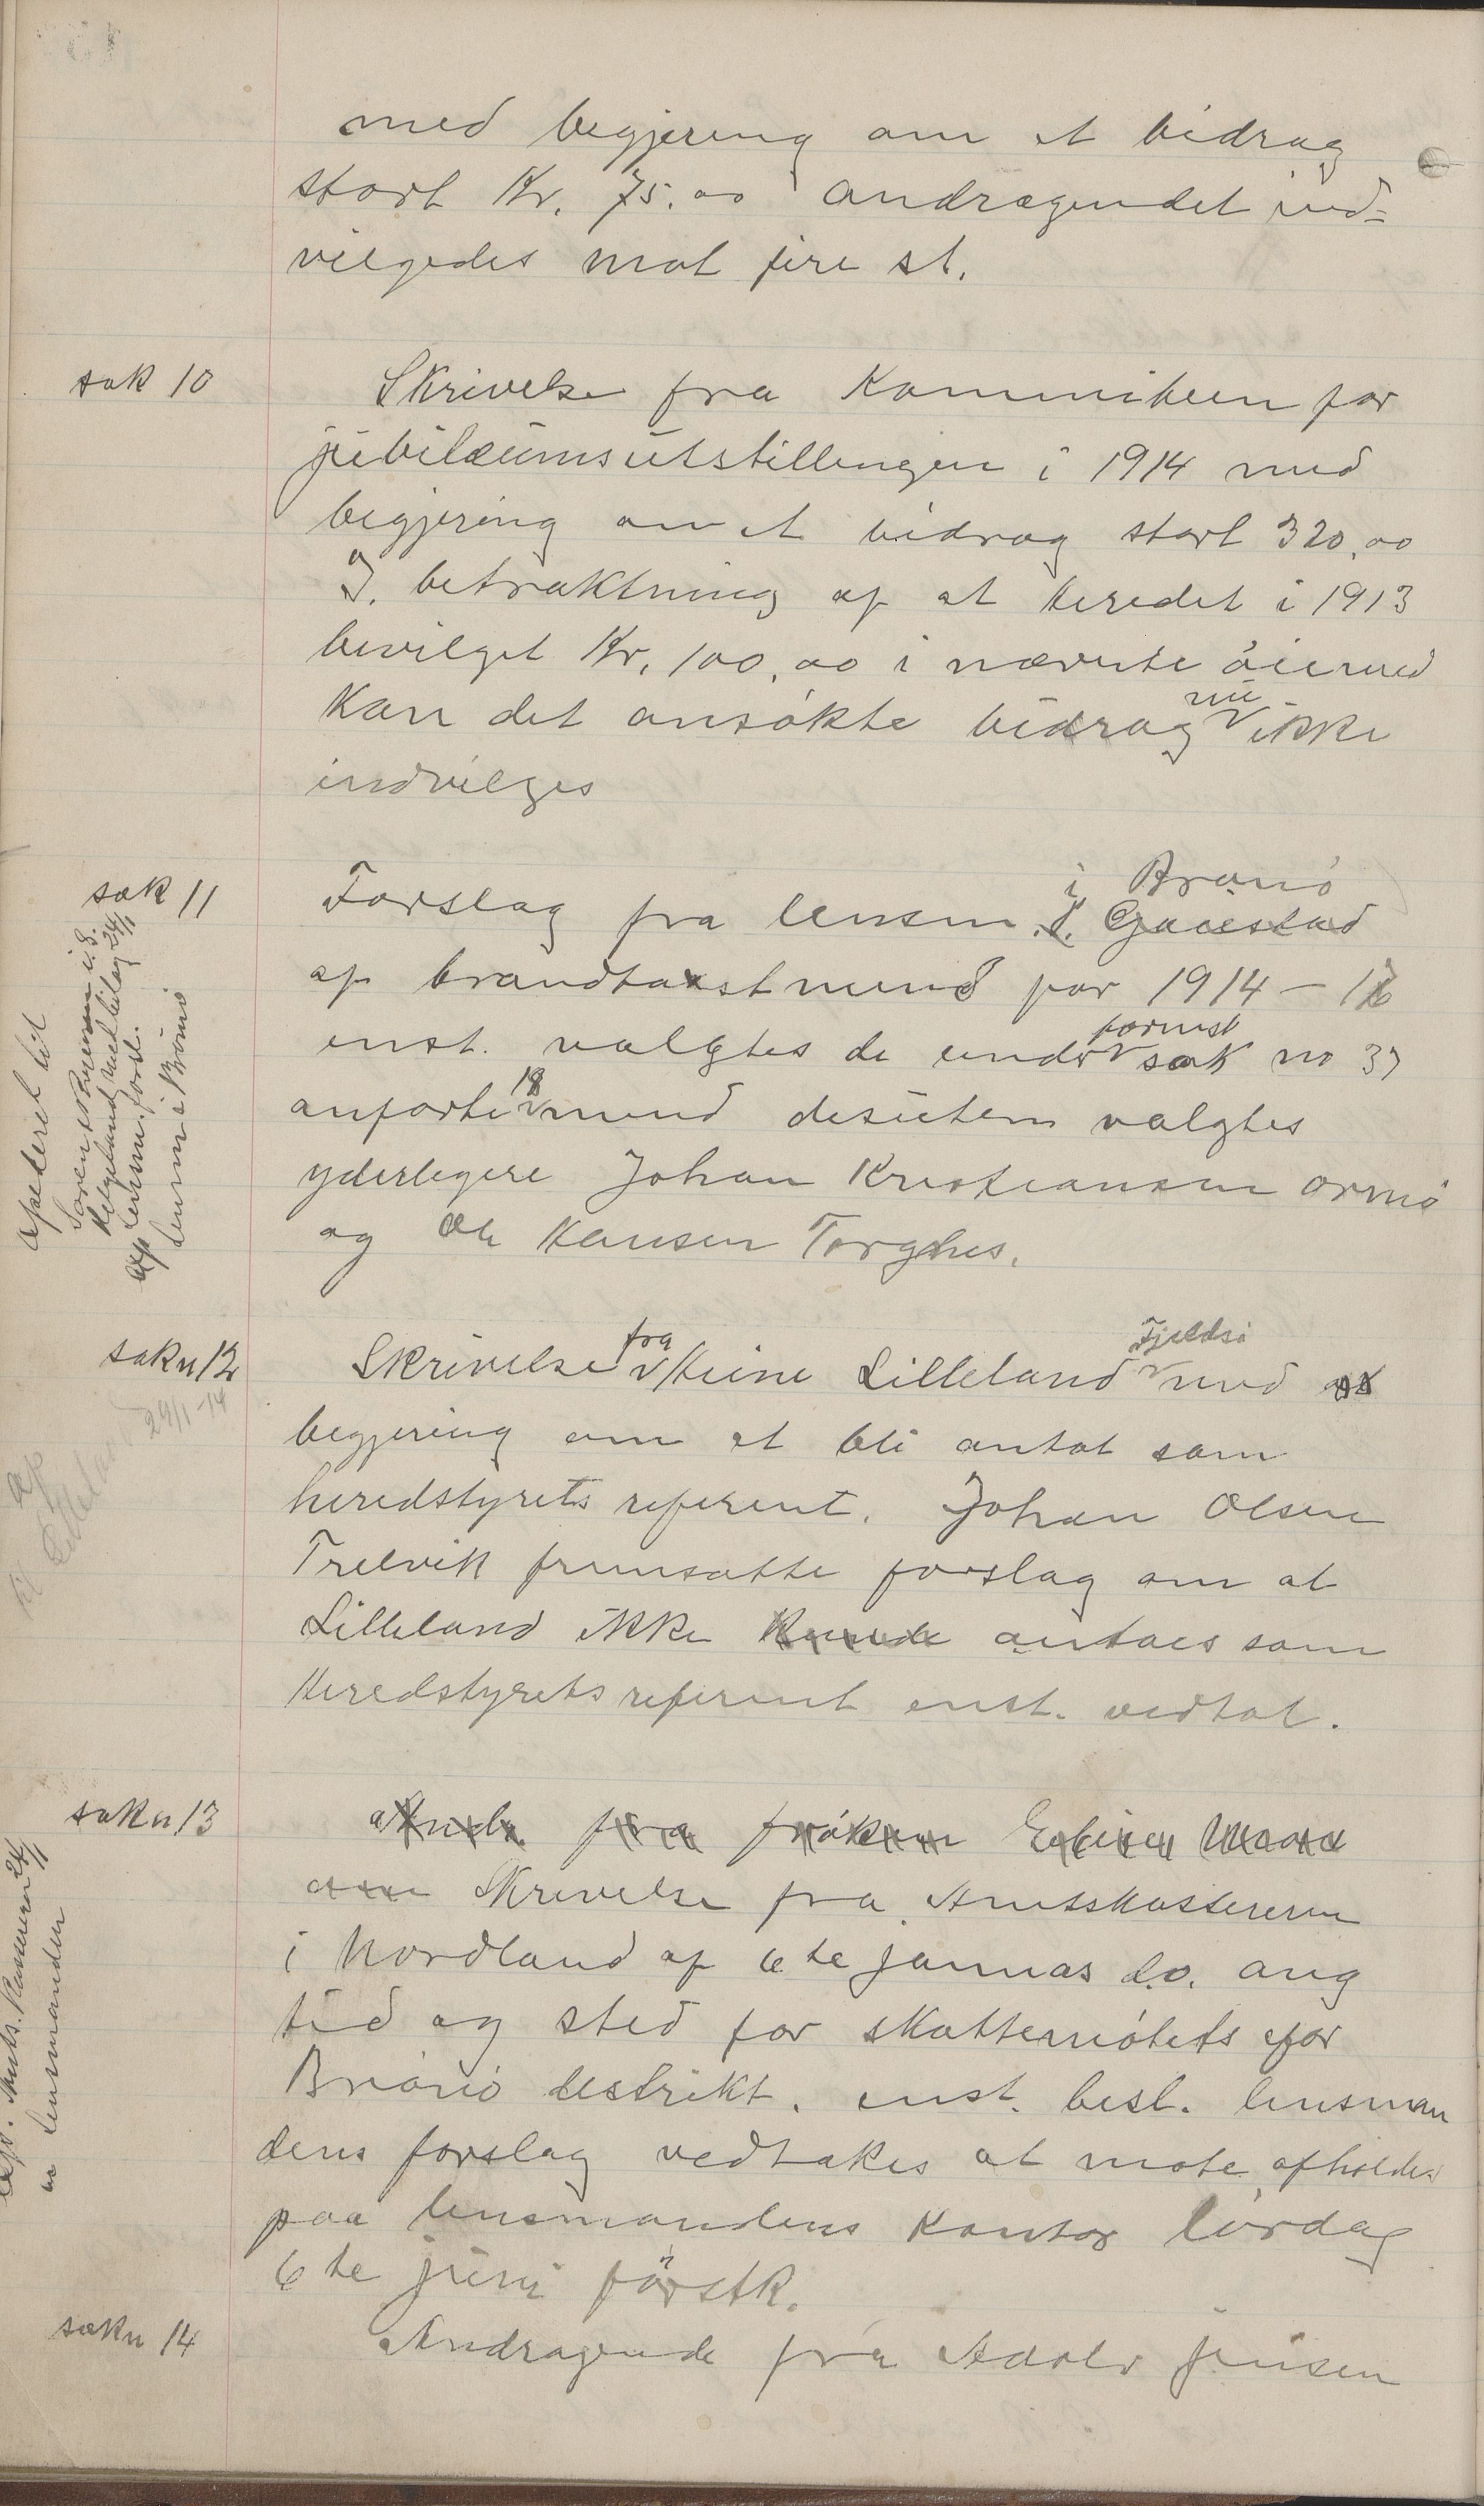 med begjering om et bidrag
stort Kr. 75.00 andragendet ind=
vilgedes mot fire st.
sak 10
Skrivelse fra Kommiteen for
jubilæumsutstillingen i 1914 med
begjering om et bidrag stort 320,00
I. betraktning af at Heredet i 1913
bevilget Kr. 100,00 i nævnte øiemed
kan det ansøkte bidrag nu ikke
indvilges
sak 11
Forslag fra lensm. i Brønø
af brandtakstmend for 1914 – 16
enst. valgtes de under formst sak no 37
anførte 18 mend desuten valgtes
yderligere Johan Kristiansen Ormø
og Ole Hansen Torghes.
expederet til
Sorenskriveren i S.
Helgeland med bilag 24/1
exp lensm. forsl.
lensm i Brønø
sak n 12
Skrivelse fra Heine Lilleland Fjeldsø med
begjering om at bli antat som
heredstyrets referent. Johan Olsen
Trelvik fremsatte forslag om at
Lilleland ikke antaes som
Heredstyrets referent enst. vedtat.
29/1-14
exp
til Lilleland
sak n 13
Skrivelse fra Amtskassereren
i Nordland af 6te januas d.o. ang
tid og sted for skattemøtets for
Brønø destrikt. enst. besl. lensman
dens forslag vedtakes at møte afholdes
paa lensmandens kontor lørdag
6te juni førstk.
exp. Amts. kassereren 24/1
lensmanden
sak n 14
Andragende fra Adolv Jensen